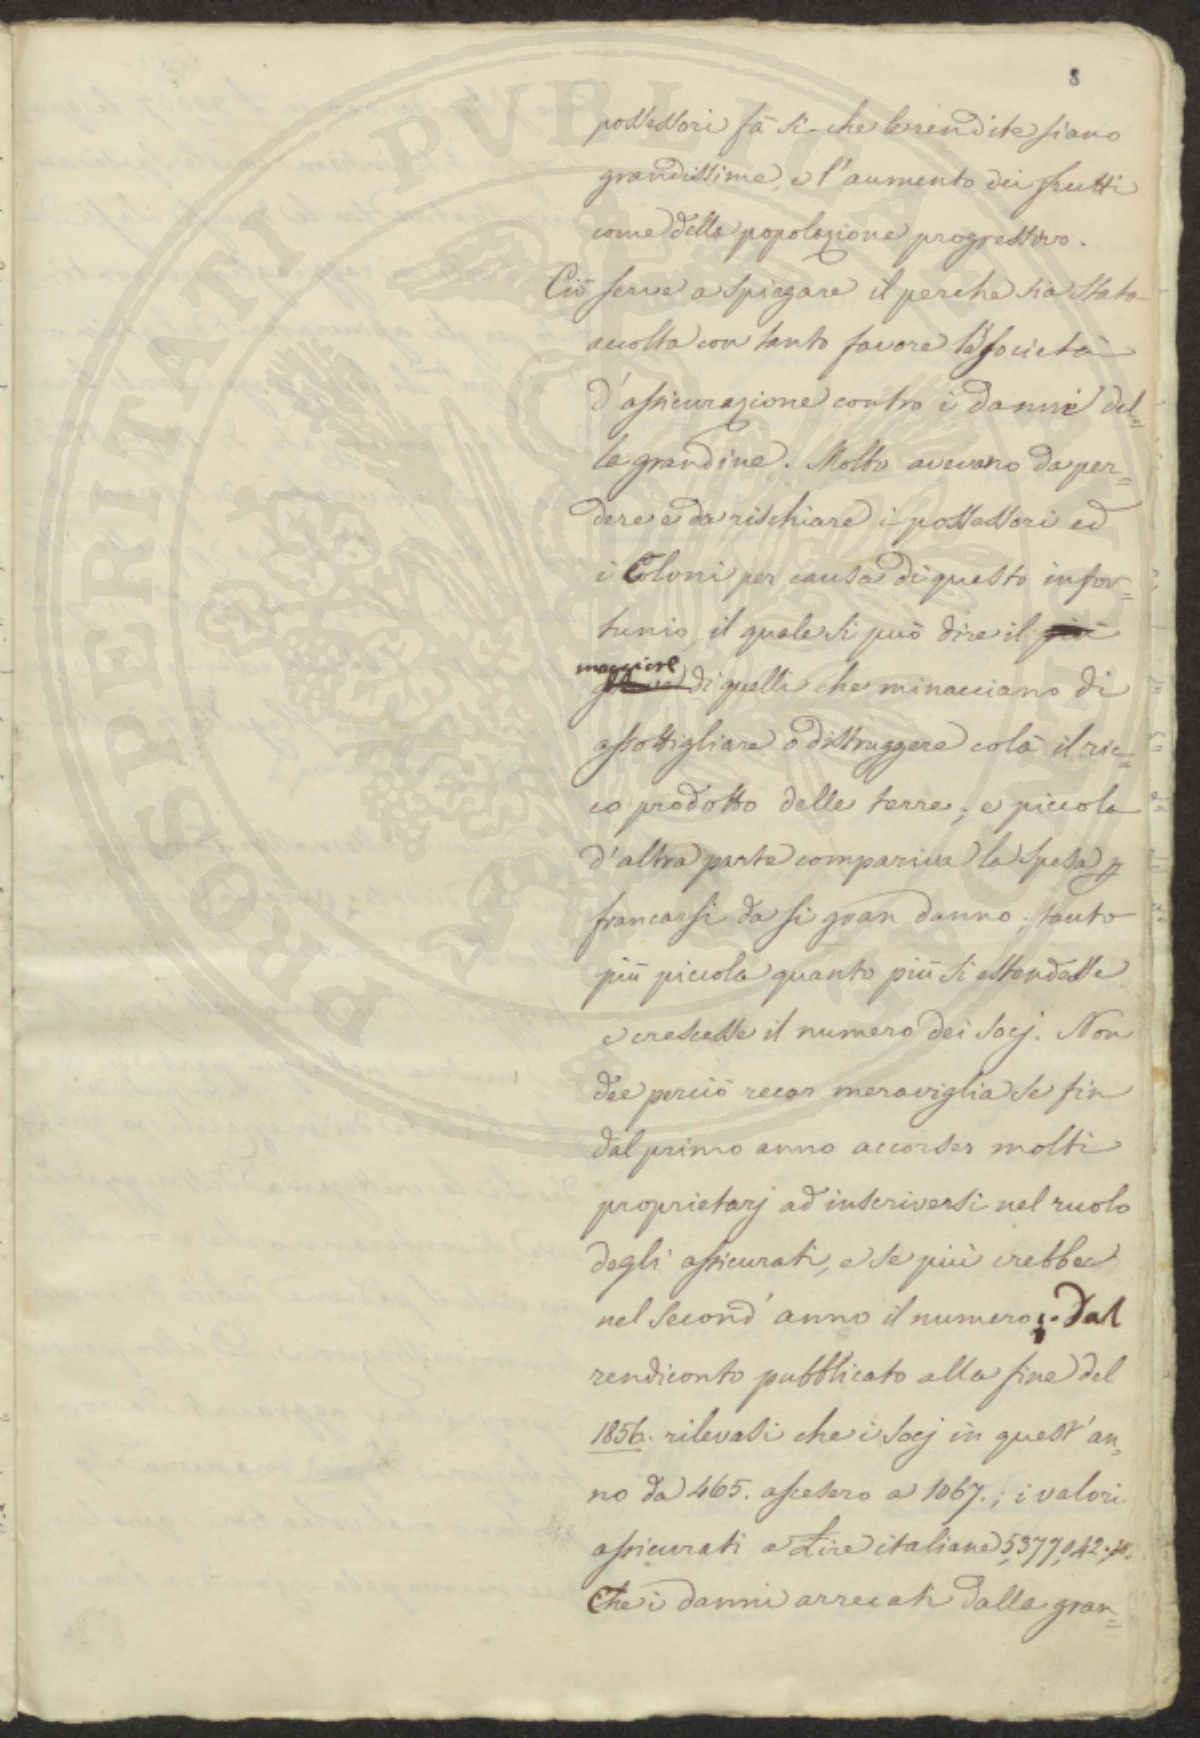 8
possessori fà sì che le rendite siano
grandissime, e l'aumento dei frutti
come della popolazione progressivo.
Ciò serve a spiegare il perche sia stata
accolta con tanto favore la Società
d'assicurazione contro i danni del=
la grandine. Molto avevano da per=
dere e da rischiare i possessori ed
i Coloni per causa di questo infor=
tunio, il quale si può dire il più
maggiore
grave di quelli che minacciano di
assottigliare o distruggere colà il ric=
co prodotto delle terre; e piccola
d'altra parte compariva la spesa p
francarsi da sì gran danno; tanto
più piccola quanto più si estendesse
e crescesse il numero dei Socj. Non
dee perciò recar meraviglia se fin
dal primo anno accorser molti
proprietarj ad inscriversi nel ruolo
degli assicurati, e se più crebbe
nel second' anno il numero. Dal
rendiconto pubblicato alla fine del
1856. rilevasi che i Socj in quest' an=
no da 465. ascesero a 1067.; i valori
assicurati a Lire italiane 5,377,042.
Che i danni arrecati dalla gran=
PROSPERITATI PVBLICAE